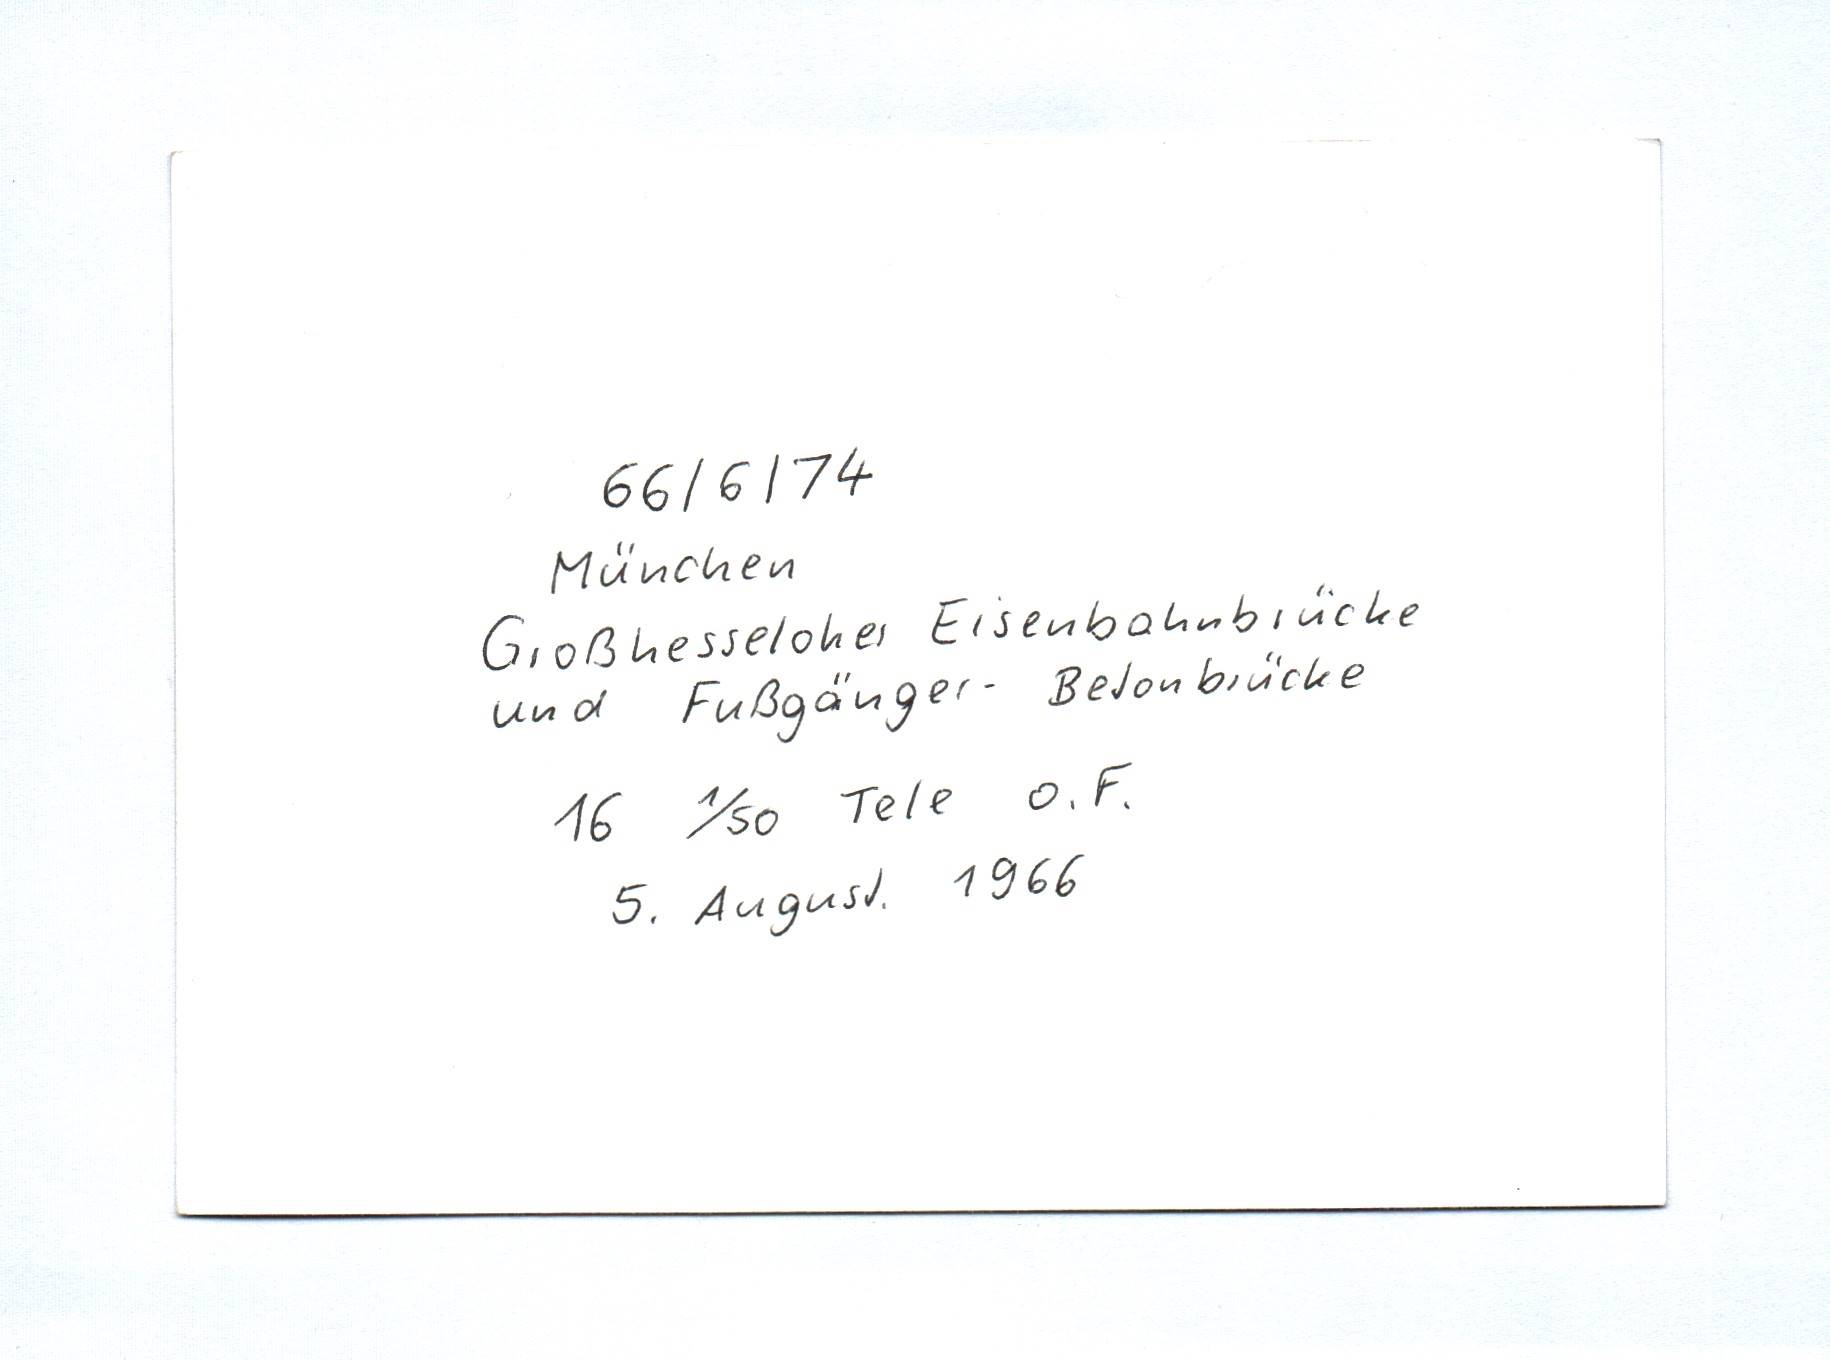 66/6/74
München
Großhesseloher Eisenbahnbrücke
und Fußgänger- Betonbrücke
16 1/50 Tele o.F.
5. August. 1966